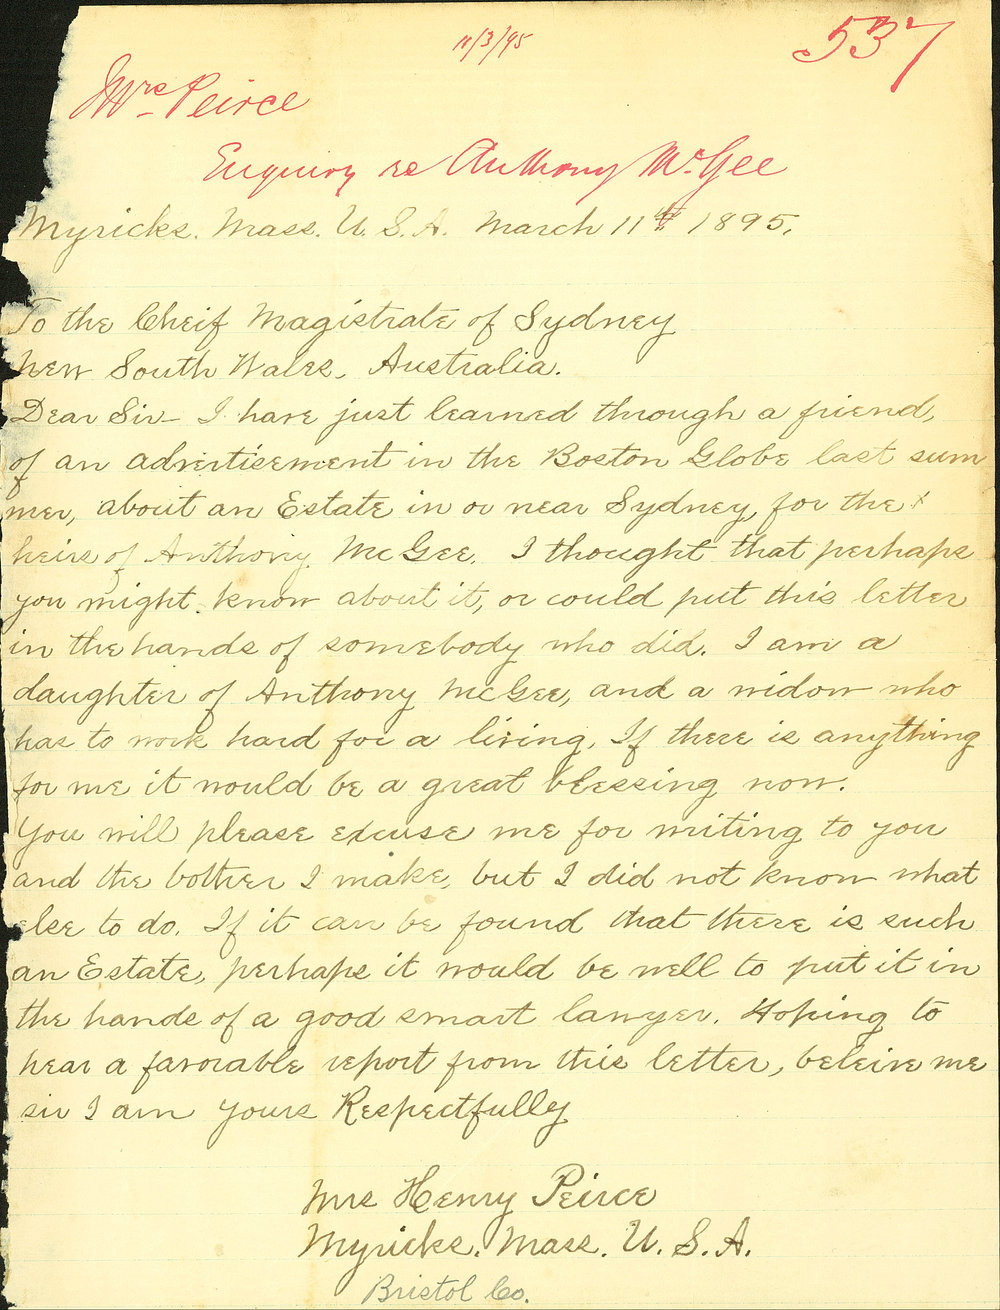 11/3/95
537
Mrs Peirce
Enquiry re Anthony McGee
Myricks. Mass. U. S. A. March 11th 1895.
To the Cheif Magistrate of Sydney
New South Wales, Australia.
Dear Sir - I have just learned through a friend,
of an advertisement in the Boston Globe last sum
mer, about an Estate in or near Sydney, for the
heirs of Anthony McGee. I thought that perhaps
you might know about it, or could put this letter
in the hands of somebody who did. I am a
daughter of Anthony McGee, and a widow who
has to work hard for a living. If there is anything
for me it would be a great blessing now.
You will please excuse me for writing to you
and the bother I make, but I did not know what
else to do. If it can be found that there is such
an Estate, perhaps it would be well to put it in
the hands of a good smart lawyer. Hoping to
hear a favorable report from this letter, beleive me
sir I am yours Respectfully
Mrs Henry Peirce
Myricks. Mass. U. S. A.
Bristol Co.